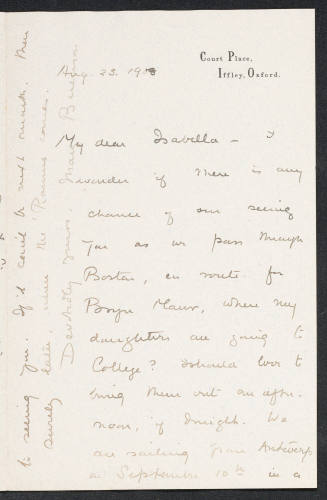 Court Place,
Iffley, Oxford.
Aug. 23. 190
My dear Isabella – I
wonder if there is any
chance of our seeing
you as we pass through
Boston, en route for
Bryn Mawr, where my
daughters are going to
College? I should love to
bring them out an after-
noon, if I might. We
are sailing from Antwerp
on September 10th in a
to seeing you. If it could be next month. then
surely later, when the Ramus comes.
Devotedly yours, Mary Berenson